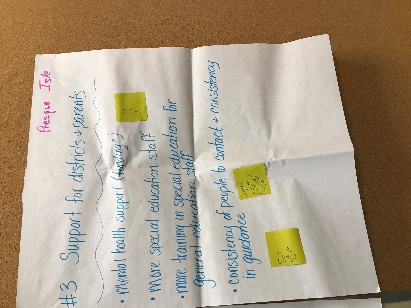 Presque Isle
#3 Support for districts + parents
• Mental health support
• More special education staff
• more training in special education for
general education staff
• consistency of people to contact + consistency
in guidance